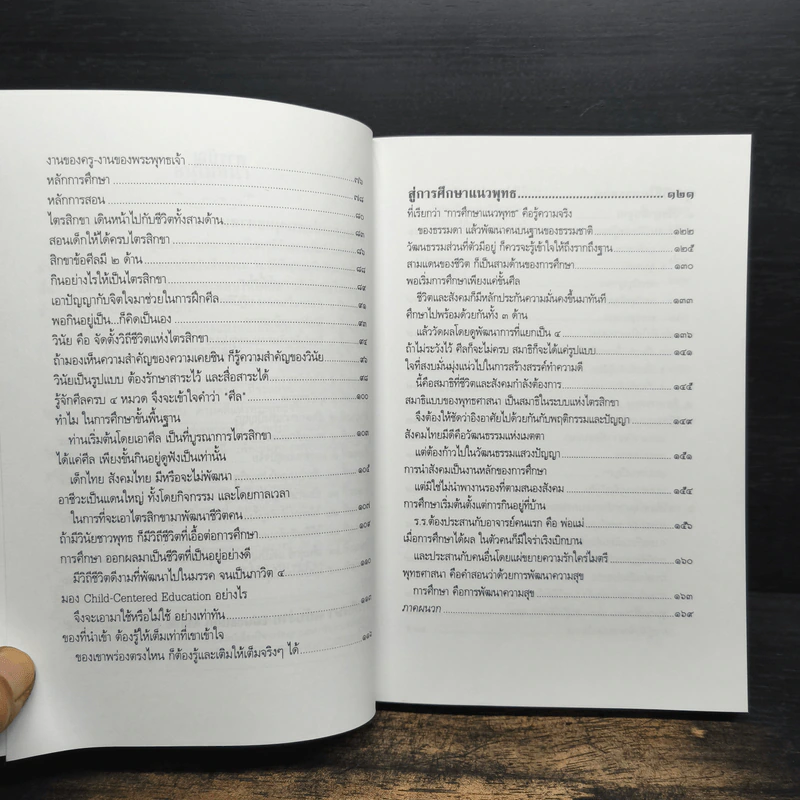 งานของครู-งานของพระพุทธเจ้า ๗๖
หลักการศึกษา ๗๘
หลักการสอน ๘๐
ไตรสิกขา เดินหน้าไปกับชีวิตทั้งสามด้าน
สอนเด็กให้ได้ครบไตรสิกขา
สิกขาข้อศีลมี ๒ ด้าน
กินอย่างไรให้เป็นไตรสิกขา ๘๙
เอาปัญญากับจิตใจมาช่วยในการฝึกศีล ๙๑
พอกินอยู่เป็น...ก็คิดเป็นเอง ๙๓
วินัย คือ จัดตั้งวิถีชีวิตแห่งไตรสิกขา ๙๔
ถ้ามองเห็นความสำคัญของความเคยชิน ก็รู้ความสำคัญของวินัย ๙๖
วินัยเป็นรูปแบบ ต้องรักษาสาระไว้ และสื่อสาระได้ ๙๘
รู้จักศีลครบ ๔ หมวด จึงจะเข้าใจคำว่า "ศีล" ๑๐๐
ทำไม ในการศึกษาขั้นพื้นฐาน
ท่านเริ่มต้นโดยเอาศีล เป็นที่บูรณาการไตรสิกขา ๑๐๓
ได้แค่ศีล เพียงขั้นกินอยู่ดูฟังเป็นเท่านั้น
เด็กไทย สังคมไทย มีหรือจะไม่พัฒนา ๑๐๕
อาชีวะเป็นแดนใหญ่ ทั้งโดยกิจกรรม และโดยกาลเวลา
ในการที่จะเอาไตรสิกขามาพัฒนาชีวิตคน ๑๐๗
ถ้ามีวินัยชาวพุทธ ก็มีวิถีชีวิตที่เอื้อต่อการศึกษา ๑๐๙
การศึกษา ออกผลมาเป็นชีวิตที่เป็นอยู่อย่างดี
มีวิถีชีวิตดีงามที่พัฒนาไปในมรรค จนเป็นภาวิต ๔ ๑๑๐
มอง Child-Centered Education อย่างไร
จึงจะเอามาใช้หรือไม่ใช้ อย่างเท่าทัน ๑๑๓
ของที่นำเข้า ต้องรู้ให้เต็มเท่าที่เขาเข้าใจ
ของเขาพร่องตรงไหน ก็ต้องรู้และเติมให้เต็มจริงๆ ได้
สู่การศึกษาแนวพุทธ ๑๒๑
ที่เรียกว่า "การศึกษาแนวพุทธ" คือรู้ความจริง
ของธรรมดา แล้วพัฒนาคนบนฐานของธรรมชาติ ๑๒๒
วัฒนธรรมส่วนที่ตัวมีอยู่ ก็ควรจะรู้เข้าใจให้ถึงรากถึงฐาน ๑๒๕
สามแดนของชีวิต ก็เป็นสามด้านของการศึกษา ๑๓๐
พอเริ่มการศึกษาเพียงแค่ขั้นศีล
ชีวิตและสังคมก็มีหลักประกันความมั่นคงขึ้นมาทันที ๑๓๓
ศึกษาไปพร้อมด้วยกันทั้ง ๓ ด้าน
แล้ววัดผลโดยดูพัฒนาการที่แยกเป็น ๔ ๑๓๖
ถ้าไม่ระวังไว้ ศีลก็จะไม่ครบ สมาธิก็จะได้แค่รูปแบบ ๑๔๑
ใจที่สงบมั่นมุ่งแน่วไปในการสร้างสรรค์ทำความดี
นี้คือสมาธิที่ชีวิตและสังคมกำลังต้องการ ๑๔๕
สมาธิแบบของพุทธศาสนา เป็นสมาธิในระบบแห่งไตรสิกขา
จึงต้องให้ชัดว่าอิงอาศัยไปด้วยกันกับพฤติกรรมและปัญญา ๑๔๙
สังคมไทยมีดีคือวัฒนธรรมแห่งเมตตา
แต่ต้องก้าวไปในวัฒนธรรมแสวงปัญญา ๑๕๑
การนำสังคมเป็นงานหลักของการศึกษา
แต่มิใช่ไม่นำพางานรองที่ตามสนองสังคม ๑๕๔
การศึกษาเริ่มต้นตั้งแต่การกินอยู่ที่บ้าน
ร.ร.ต้องประสานกับอาจารย์คนแรก คือ พ่อแม่ ๑๕๖
เมื่อการศึกษาได้ผล ในตัวคนก็มีใจร่าเริงเบิกบาน
และประสานกับคนอื่นโดยแผ่ขยายความรักใคร่ไมตรี ๑๖๐
พุทธศาสนา คือคำสอนว่าด้วยการพัฒนาความสุข
การศึกษา คือการพัฒนาความสุข ๑๖๓
ภาคผนวก ๑๖๙